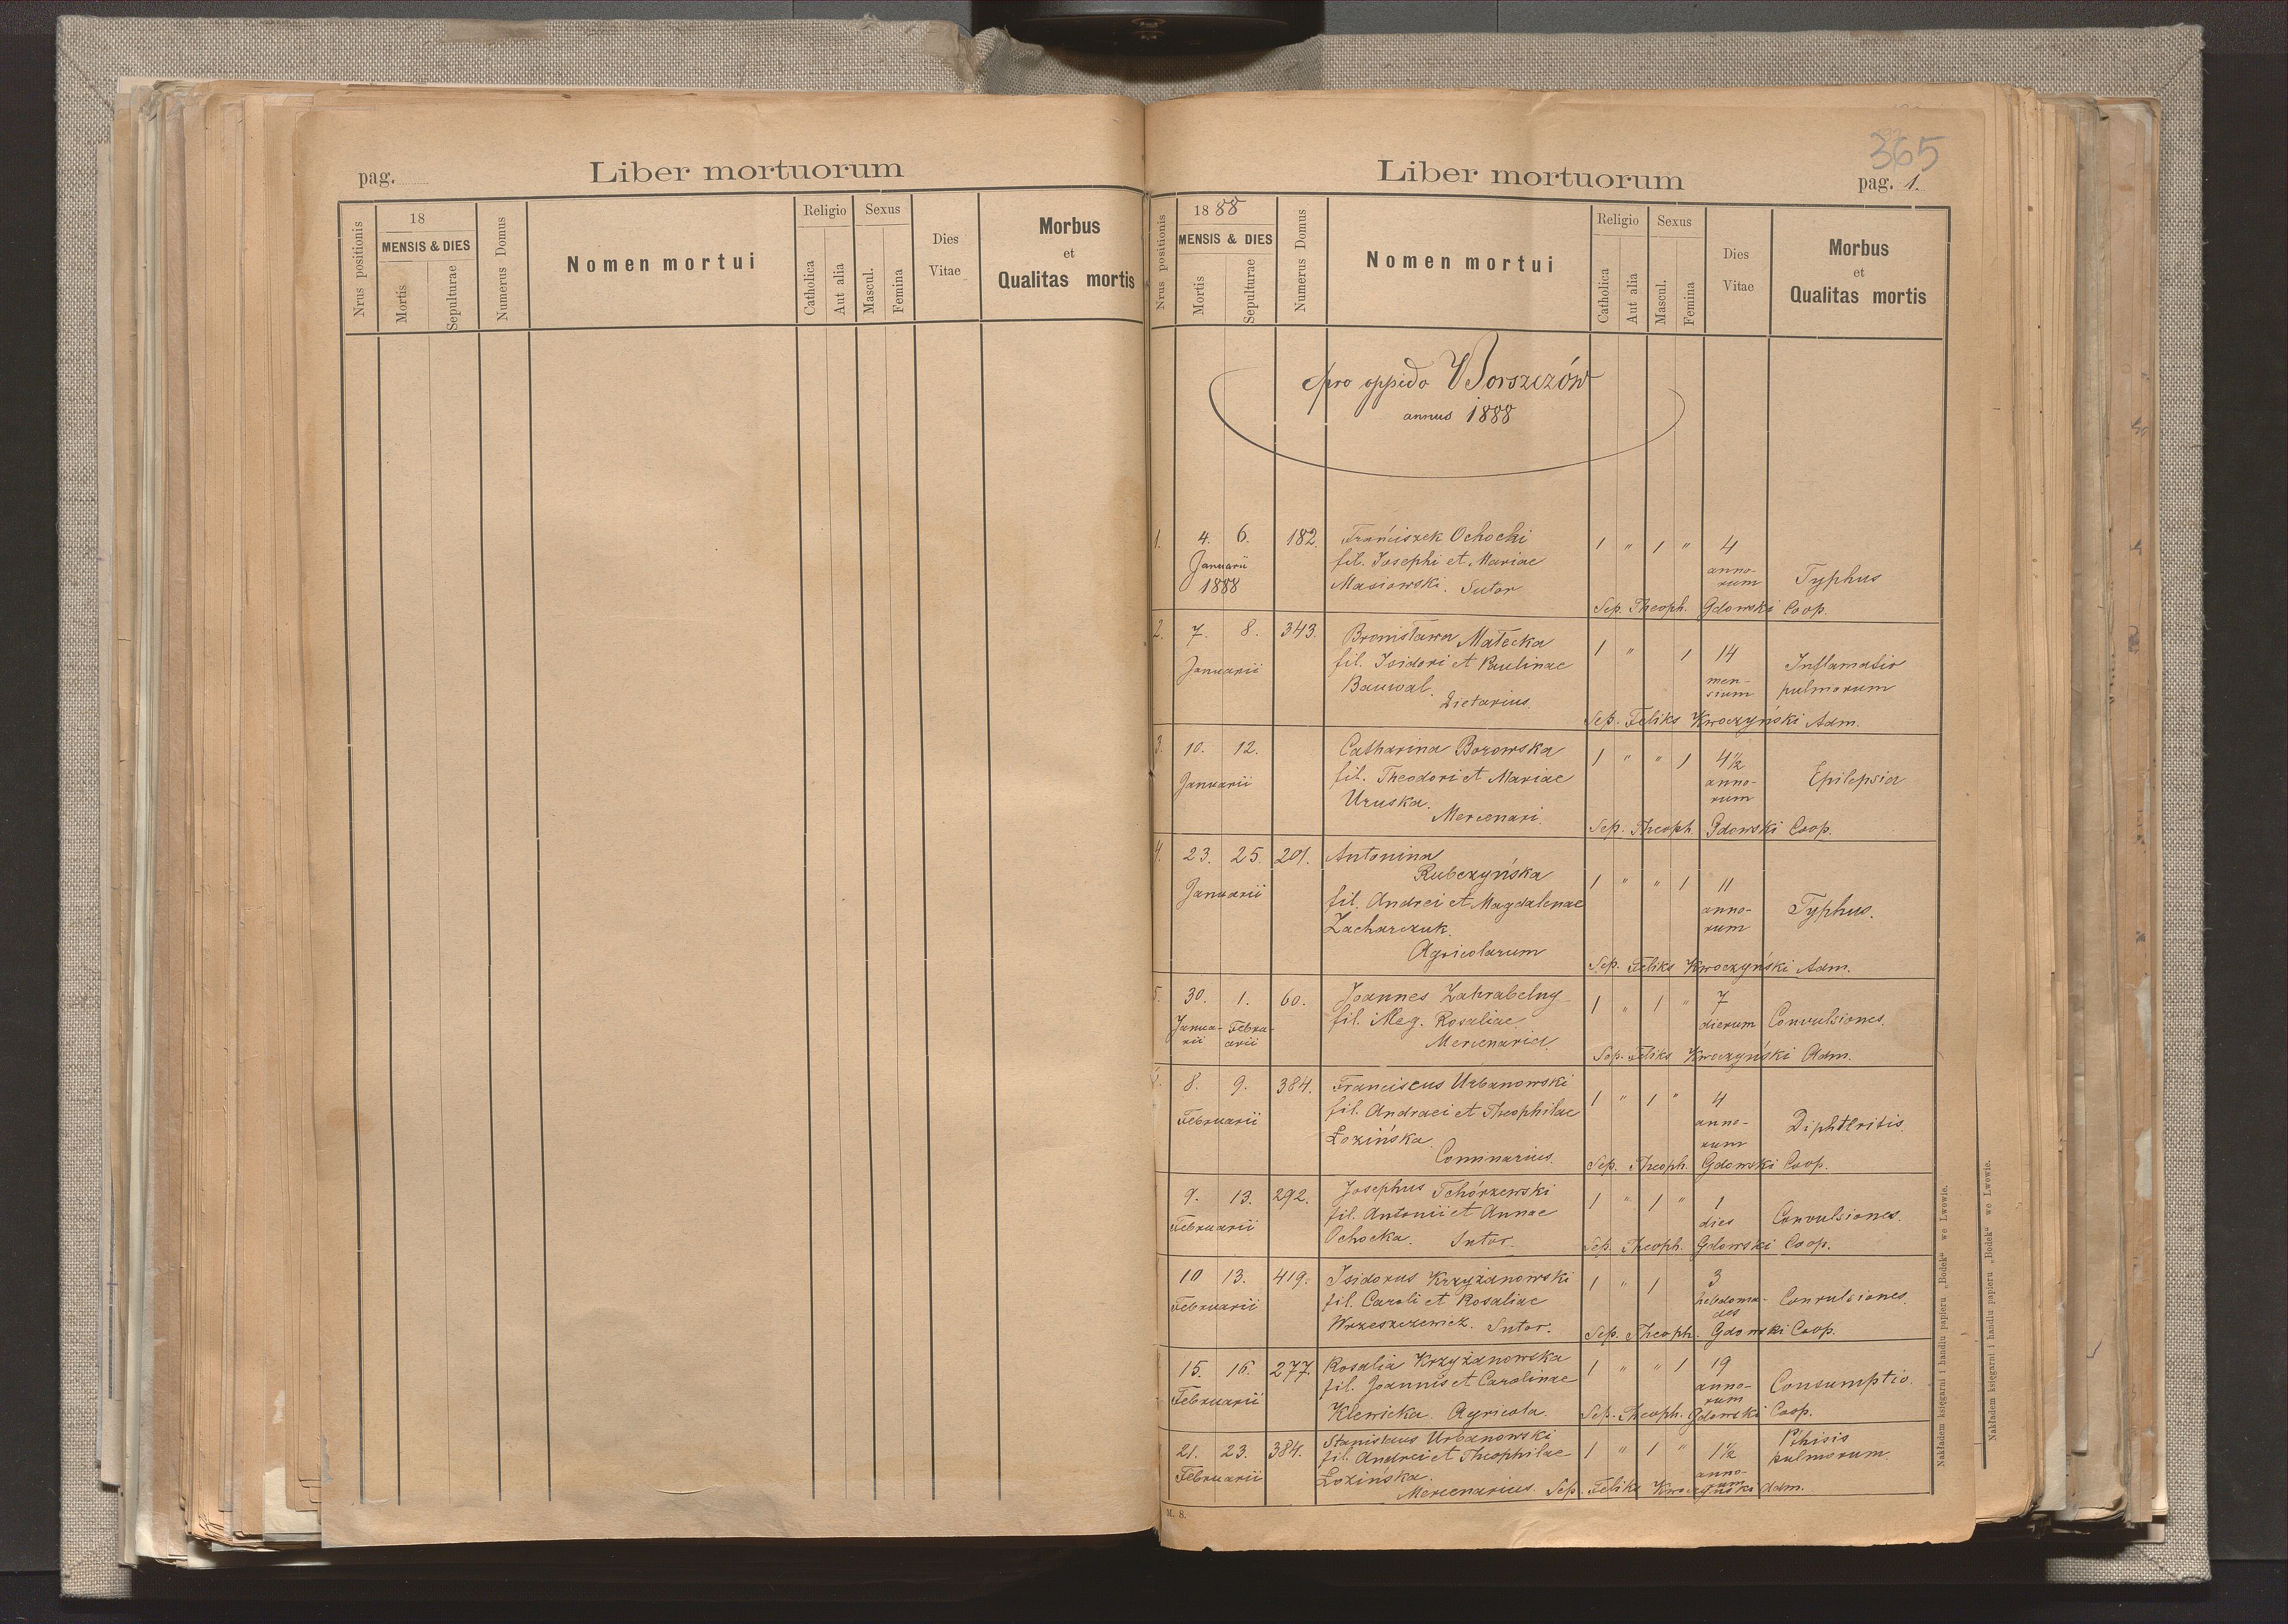 pag.
Liber mortuorum
Nrus positionis
18
MENSIS & DIES
Mortis
Sepulturae
Numerus Domus
Nomen mortui
Religio
Catholica
Aut alia
Sexus
Mascul.
Femina
Dies
Vitae
Morbus
et
Qualitas mortis
365
Liber mortuorum
pag. 1.
Nrus positionis
18 88
MENSIS & DIES
Mortis
Sepulturae
Numerus Domus
Nomen mortui
Religio
Catholica
Aut alia
Sexus
Mascul.
Femina
Dies
Vitae
Morbus
et
Qualitas mortis
pro oppido Borszczów
annus 1888
1. 4. 6. 182. Franciszek Ochocki 1 " 1 " 4
Januarii fil. Josephi et Mariae anno-
1888 Masiowski. Sutor rum Typhus
Sep. Theoph. Gdowski Coop.
2. 7. 8. 343. Bronisława Małecka 1 " 1 14 Inflamatio
Januarii fil. Isidori et Paulinae men- pulmorum
Bauwal. sium
Dietarius.
Sep. Feliks Kwoczyński Adm.
3. 10. 12. Catharina Borowska 1 " " 1 4½
Januarii fil. Theodori et Mariae anno- Epilepsia
Uruska. rum
Mercenari.
Sep. Theoph Gdowski Coop.
4. 23. 25. 201. Antonina
Rubczyńska 1 " " 1 11
Januarii fil. Andrei et Magdalenae anno- Typhus.
Zacharczuk. rum
Agricolarum
Sep. Feliks Kwoczyński Adm.
5. 30. 1. 60. Joannes Zahrabelny 1 " 1 " 7
Janua- Febru- fil. illeg. Rosaliae dierum Convulsiones.
rii arii Mercenaria.
Sep. Feliks Kwoczyński Adm.
8. 9. 384. Franciscus Urbanowski 1 " 1 " 4
Februarii fil. Andraei et Theophilae anno- Diphteritis.
Łozińska. rum
Sep. Theoph. Gdowski Coop.
9. 13. 292. Josephus Tchórzewski 1 " 1 " 1
Februarii fil. Antonii et Annae dies Convulsiones.
Ochocka. Sutor.
Sep. Theoph. Gdowski Coop.
10 13. 419. Isidorus Krzyżanowski 1 " 1 3
Februarii fil. Caroli et Rosaliae hebdoma- Convulsiones.
Wrzeszczewicz. Sutor. des
Sep. Theoph. Gdowski Coop.
15. 16. 277. Rosalia Krzyżanowska 1 " " 1 19
Februarii fil. Joannis et Carolinae anno- Consumptio.
Klewicka. Agricola. rum
Sep. Theoph. Gdowski Coop.
21. 23. 384. Stanislaus Urbanowski 1 " 1 " 1½ Phisis
Februarii fil. Andrei et Theophilae anno- pulmorum.
Łozińska. rum
Mercenarius. Sep. Feliks Kwoczyński Adm.
M. 8.
Nakładem księgarni i handlu papieru „Bodek" we Lwowie.
Nakładem księgarni i handlu papieru „Bodek" we Lwowie.